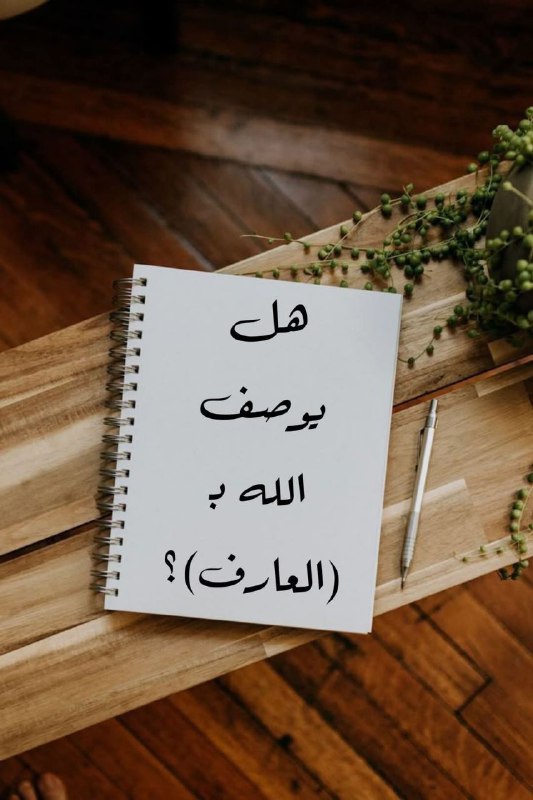 هل
يوصف
الله بـ
(العارف)؟